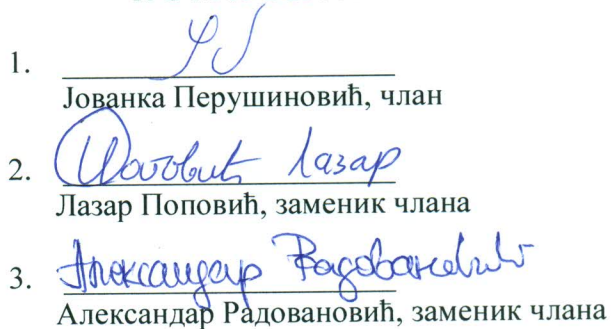 1.
Јованка Перушиновић, члан
2. Поповић Лазар
Лазар Поповић, заменик члана
3. Александар Радовановић
Александар Радовановић, заменик члана